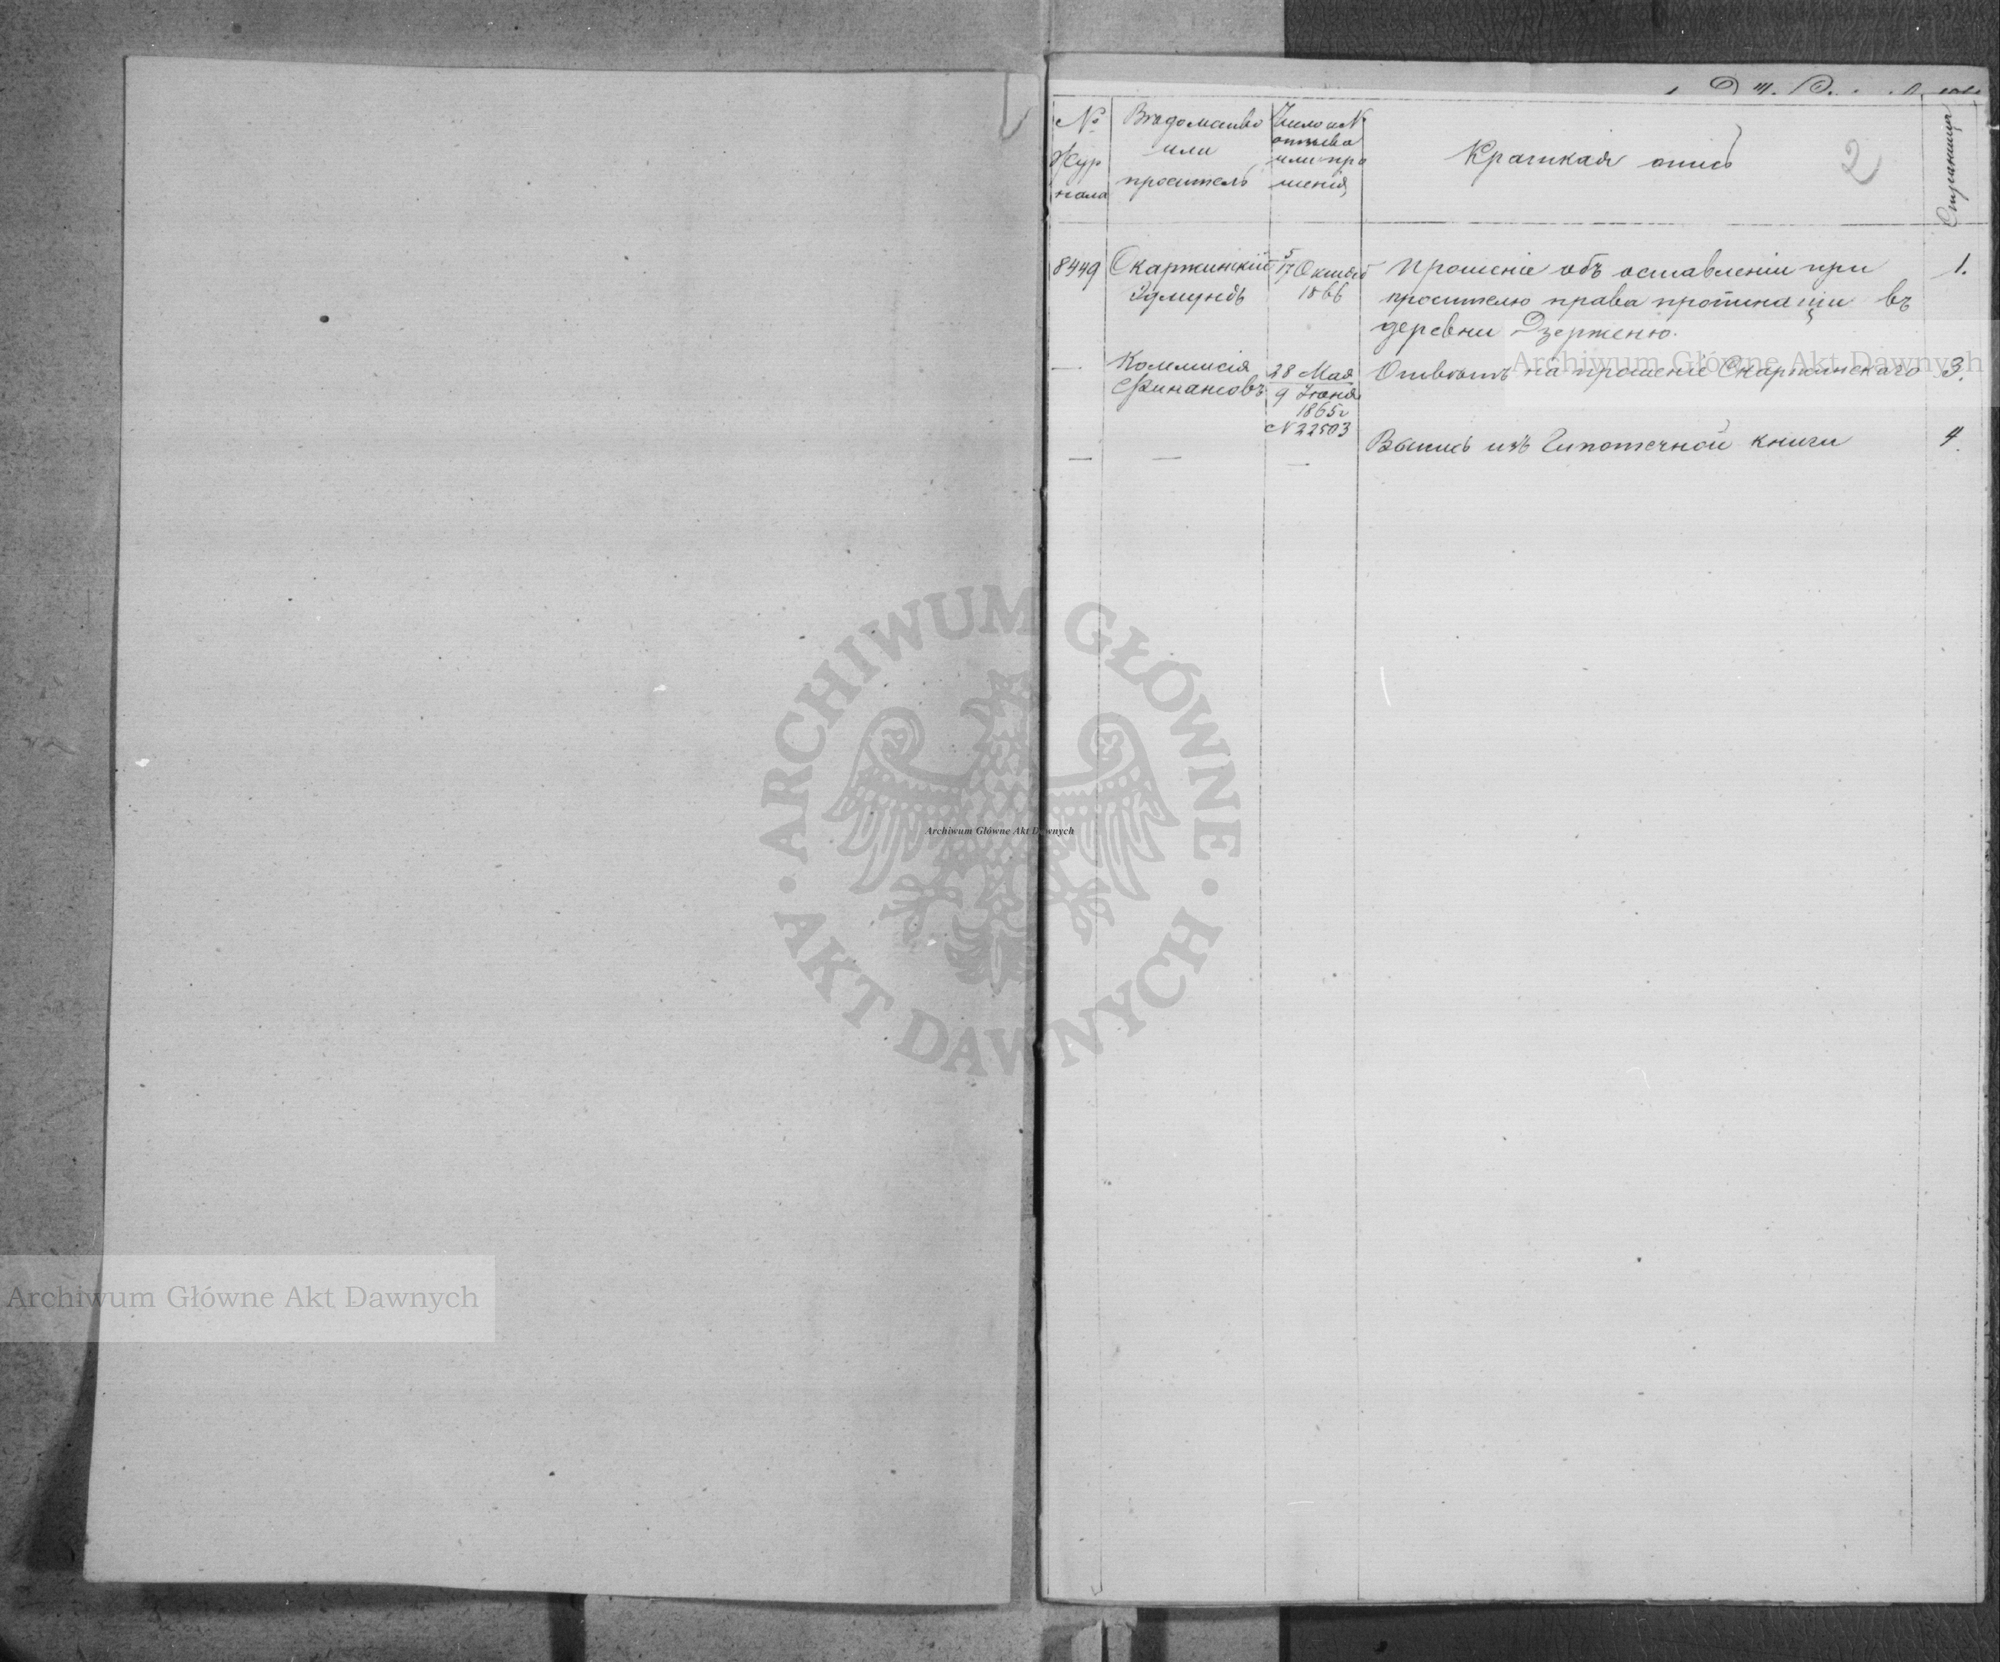 №
Жур
нала
Вѣдомство
или
проситель
Число и №
отзыва
или про
шенія
Краткая опись
2
Страница
8449
Скаржинскій
Эдмундъ
5/17 Октяб
1866
Прошеніе объ оставленіи при
просителю права пропинаціи въ
деревни Дзерженю.
1.
—
Коммисія
Финансовъ
28 Мая
9 Іюня
1865 г
№ 22503
Отвѣтъ на прошеніе Скаржинскаго
3.
—
—
—
Выпись изъ Гипотечной книги
4.
Archiwum Główne Akt Dawnych
ARCHIWUM GŁÓWNE
· AKT DAWNYCH ·
Archiwum Główne Akt Dawnych
Archiwum Główne Akt Dawnych